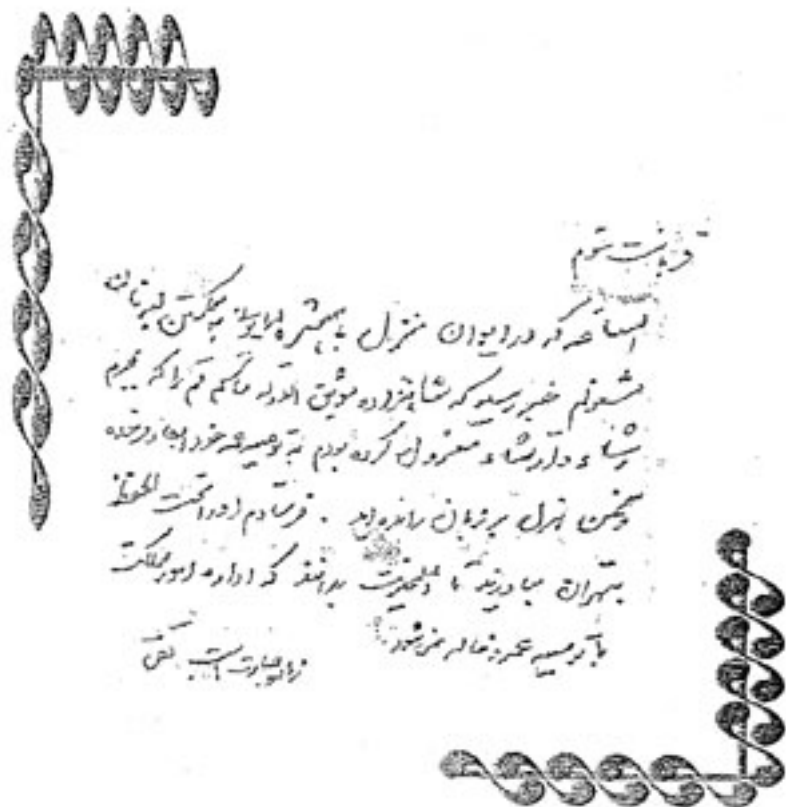 قربانت شوم
الساعه که در ایوان منزل با همشیره همایونی به شکستن لبه نان
مشغولم خبر رسید که شاهزاده موثق الدوله حاکم قم را که به جرم
رشاء و ارتشاء معزول کرده بودم به توصیه عمه خود ابقاء فرموده
و سخن هزل بر زبان رانده‌اید . فرستادم او را تحت الحفظ
به تهران بیاورند تا اعلیحضرت بدانند که اداره امور مملکت
با توصیه عمه و خاله نمی‌شود.
زیاده جسارت است تقی